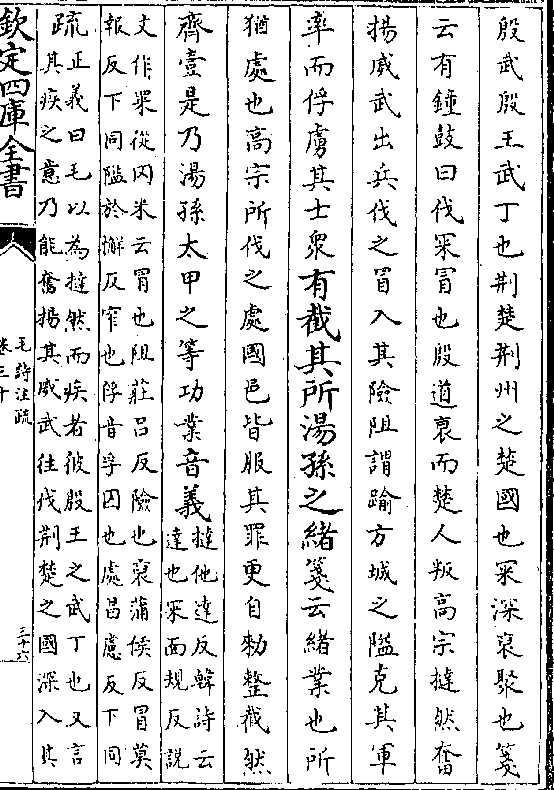 殷武殷王武丁也荆楚荆州之楚國也罙深裒聚也箋
云有鐘鼓曰伐罙冒也殷道衰而楚人叛高宗撻然奮
揚威武出兵伐之冒入其險阻謂踰方城之隘克其軍
率而俘虜其士衆有截其所湯孫之緒箋云緒業也所
猶處也高宗所伐之處國邑皆服其罪更自勑整截然
齊壹是乃湯孫太甲之等功業音義撻他達反韓詩云
達也罙面規反說
文作𥥍從冈米云冒也阻莊呂反險也裒蒲侯反冒莫
報反下同隘於懈反窄也俘音孚囚也處昌慮反下同
疏正義曰毛以為撻然而疾者彼殷王之武丁也又言
其疾之意乃能奮揚其威武往伐荆楚之國深入其
欽定四庫全書
毛詩注疏
卷三十
三十六